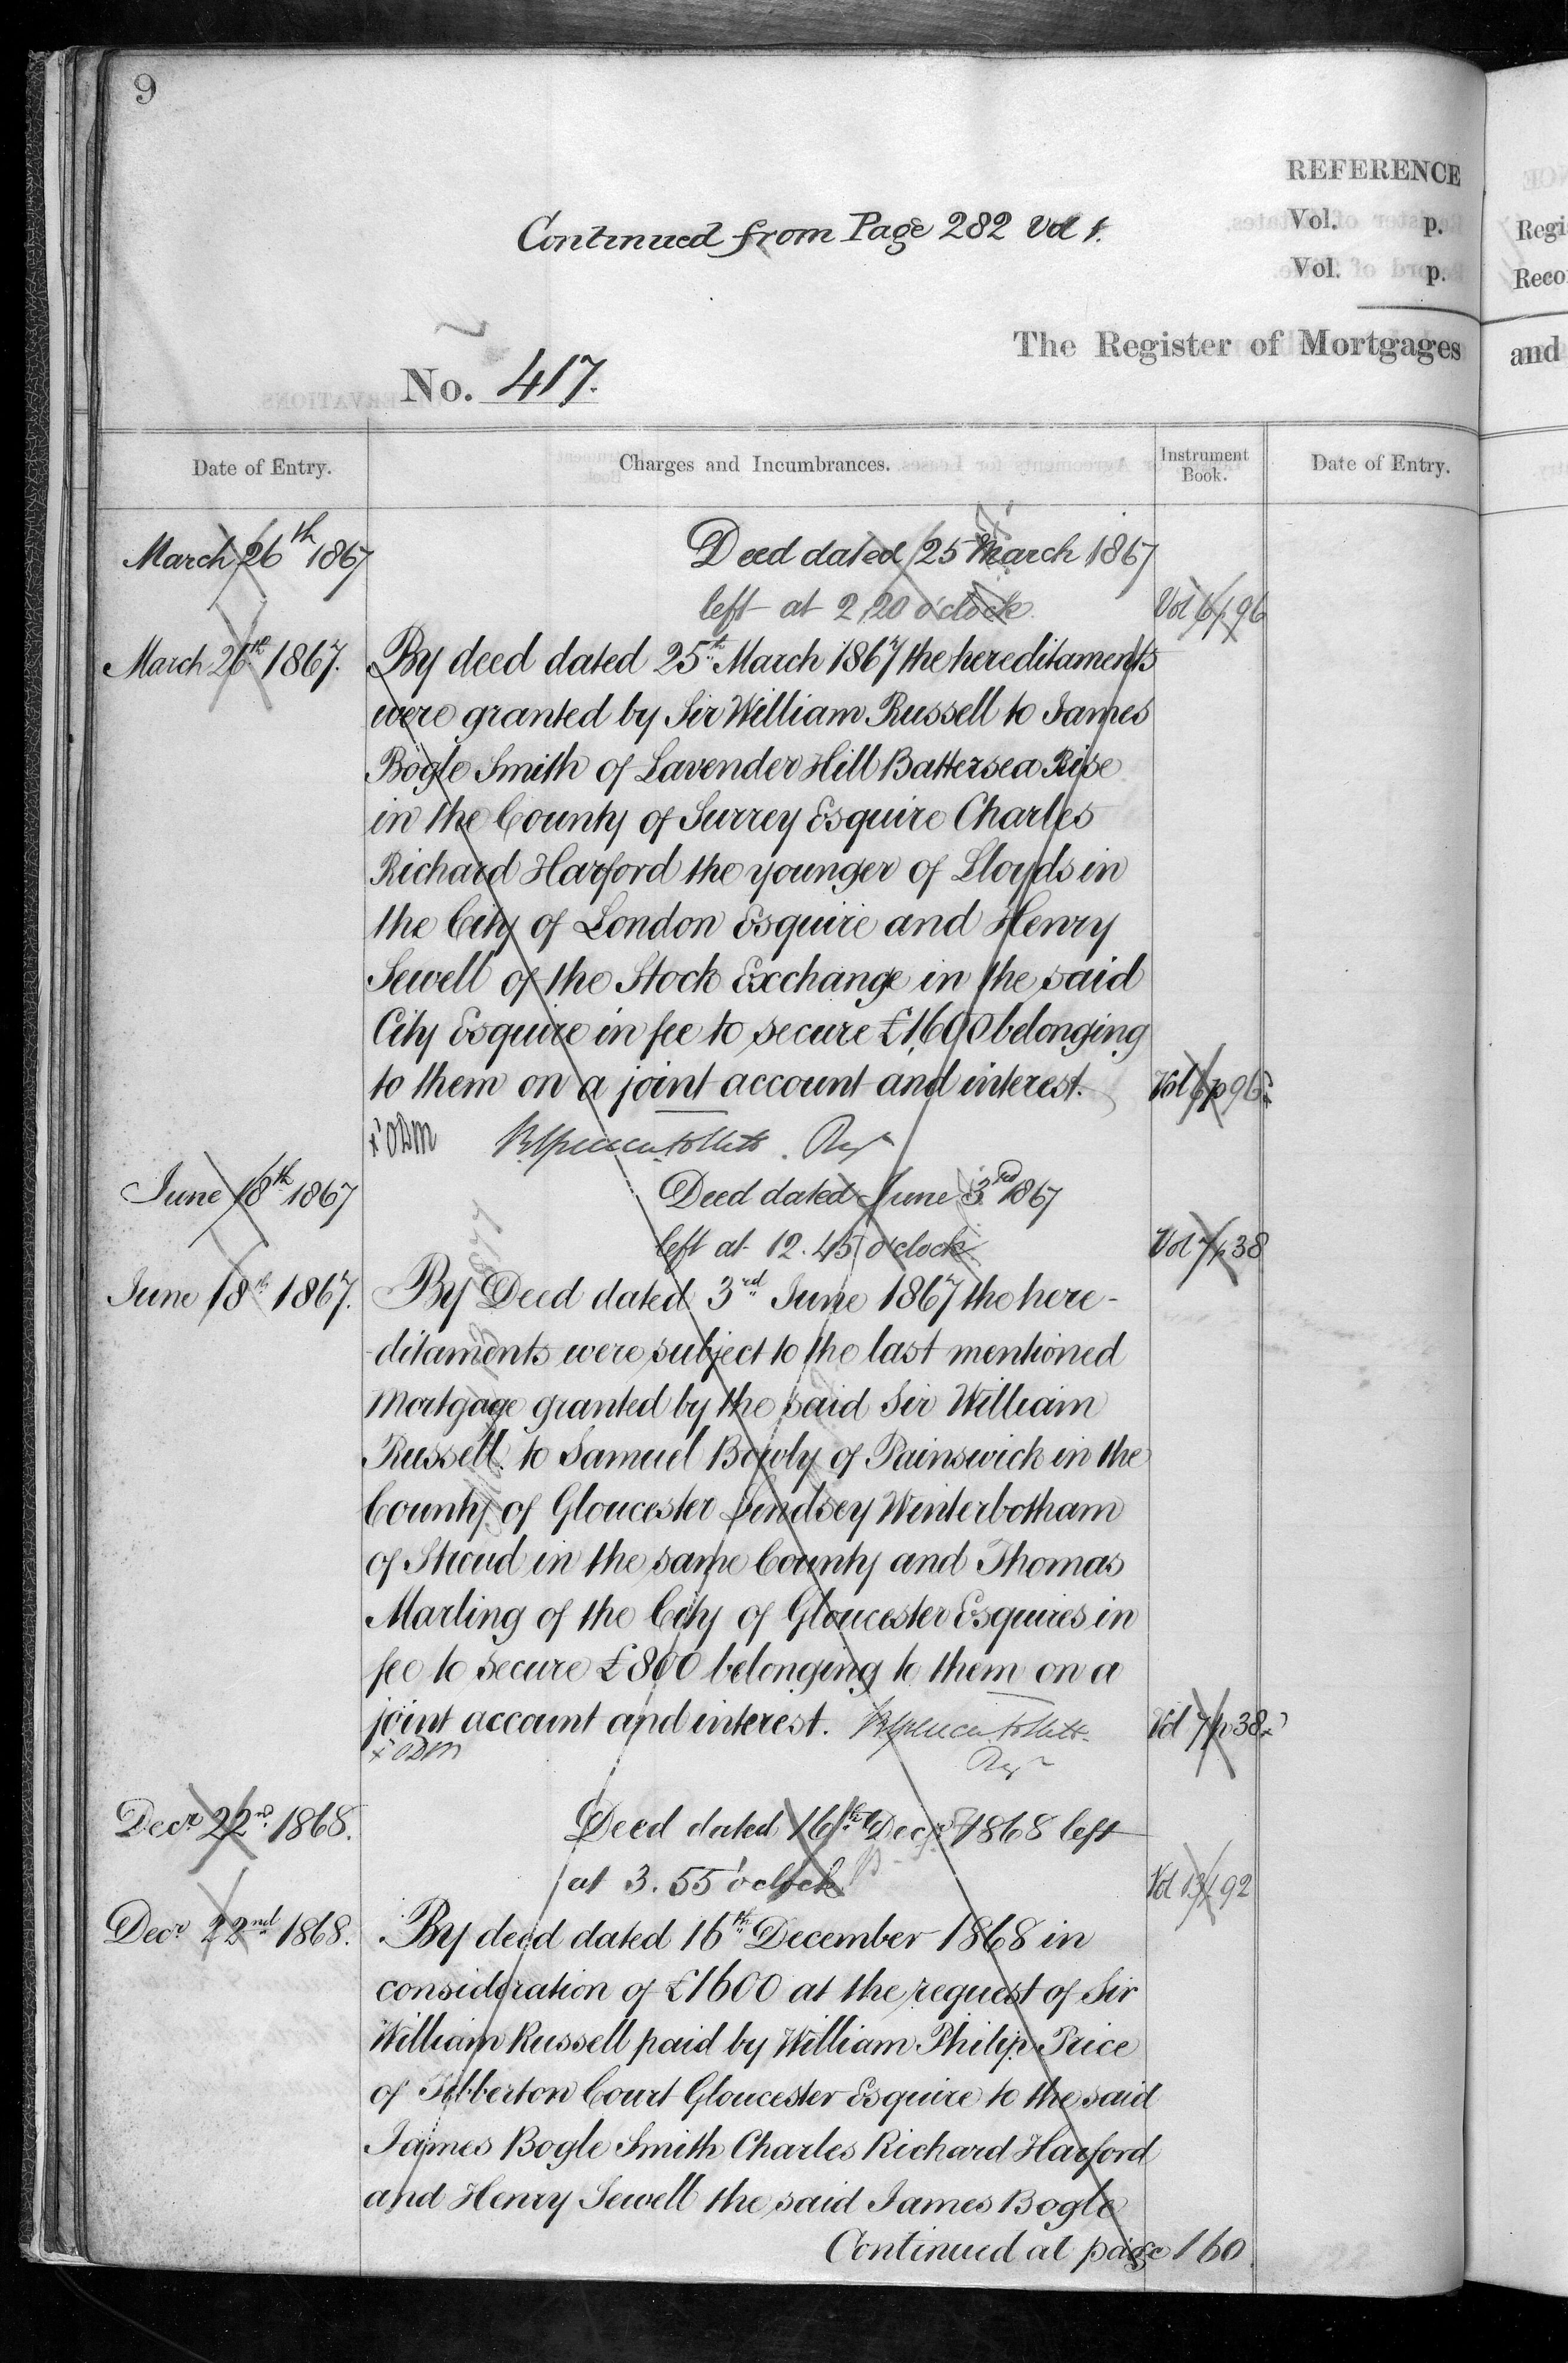 9
REFERENCE
Continued from Page 282 Vol 1.
Vol. p.
Vol. p.
The Register of Mortgages
No. 417.
Date of Entry. Charges and Incumbrances. Instrument Book. Date of Entry.
March 26th 1867 Deed dated 25 March 1867
left at 2,20 o'clock Vol 6 p 96
March 26th 1867. By deed dated 25th March 1867 the hereditaments
were granted by Sir William Russell to James
Bogle Smith of Lavender Hill Battersea Rise
in the County of Surrey Esquire Charles
Richard Harford the younger of Lloyds in
the City of London Esquire and Henry
Sewell of the Stock Exchange in the said
City Esquire in fee to secure £1,600 belonging
to them on a joint account and interest. Vol 6 p 96
June 18th 1867 Deed dated June 3rd 1867
left at 12.45 o'clock Vol 7 p 38
June 18th 1867. By Deed dated 3rd June 1867 the here-
-ditaments were subject to the last mentioned
Mortgage granted by the said Sir William
Russell to Samuel Bowly of Painswick in the
County of Gloucester Lindsey Winterbotham
of Stroud in the same County and Thomas
Marling of the City of Gloucester Esquires in
fee to secure £800 belonging to them on a
joint account and interest. Vol 7 p 38
Decr 22nd 1868. Deed dated 16th Decr 1868 left
at 3.55 o'clock Vol 13 p 92
Decr 22nd 1868. By deed dated 16th December 1868 in
consideration of £1600 at the request of Sir
William Russell paid by William Philip Price
of Tibberton Court Gloucester Esquire to the said
James Bogle Smith Charles Richard Harford
and Henry Sewell the said James Bogle
Continued at page 160
Regi
Reco
and